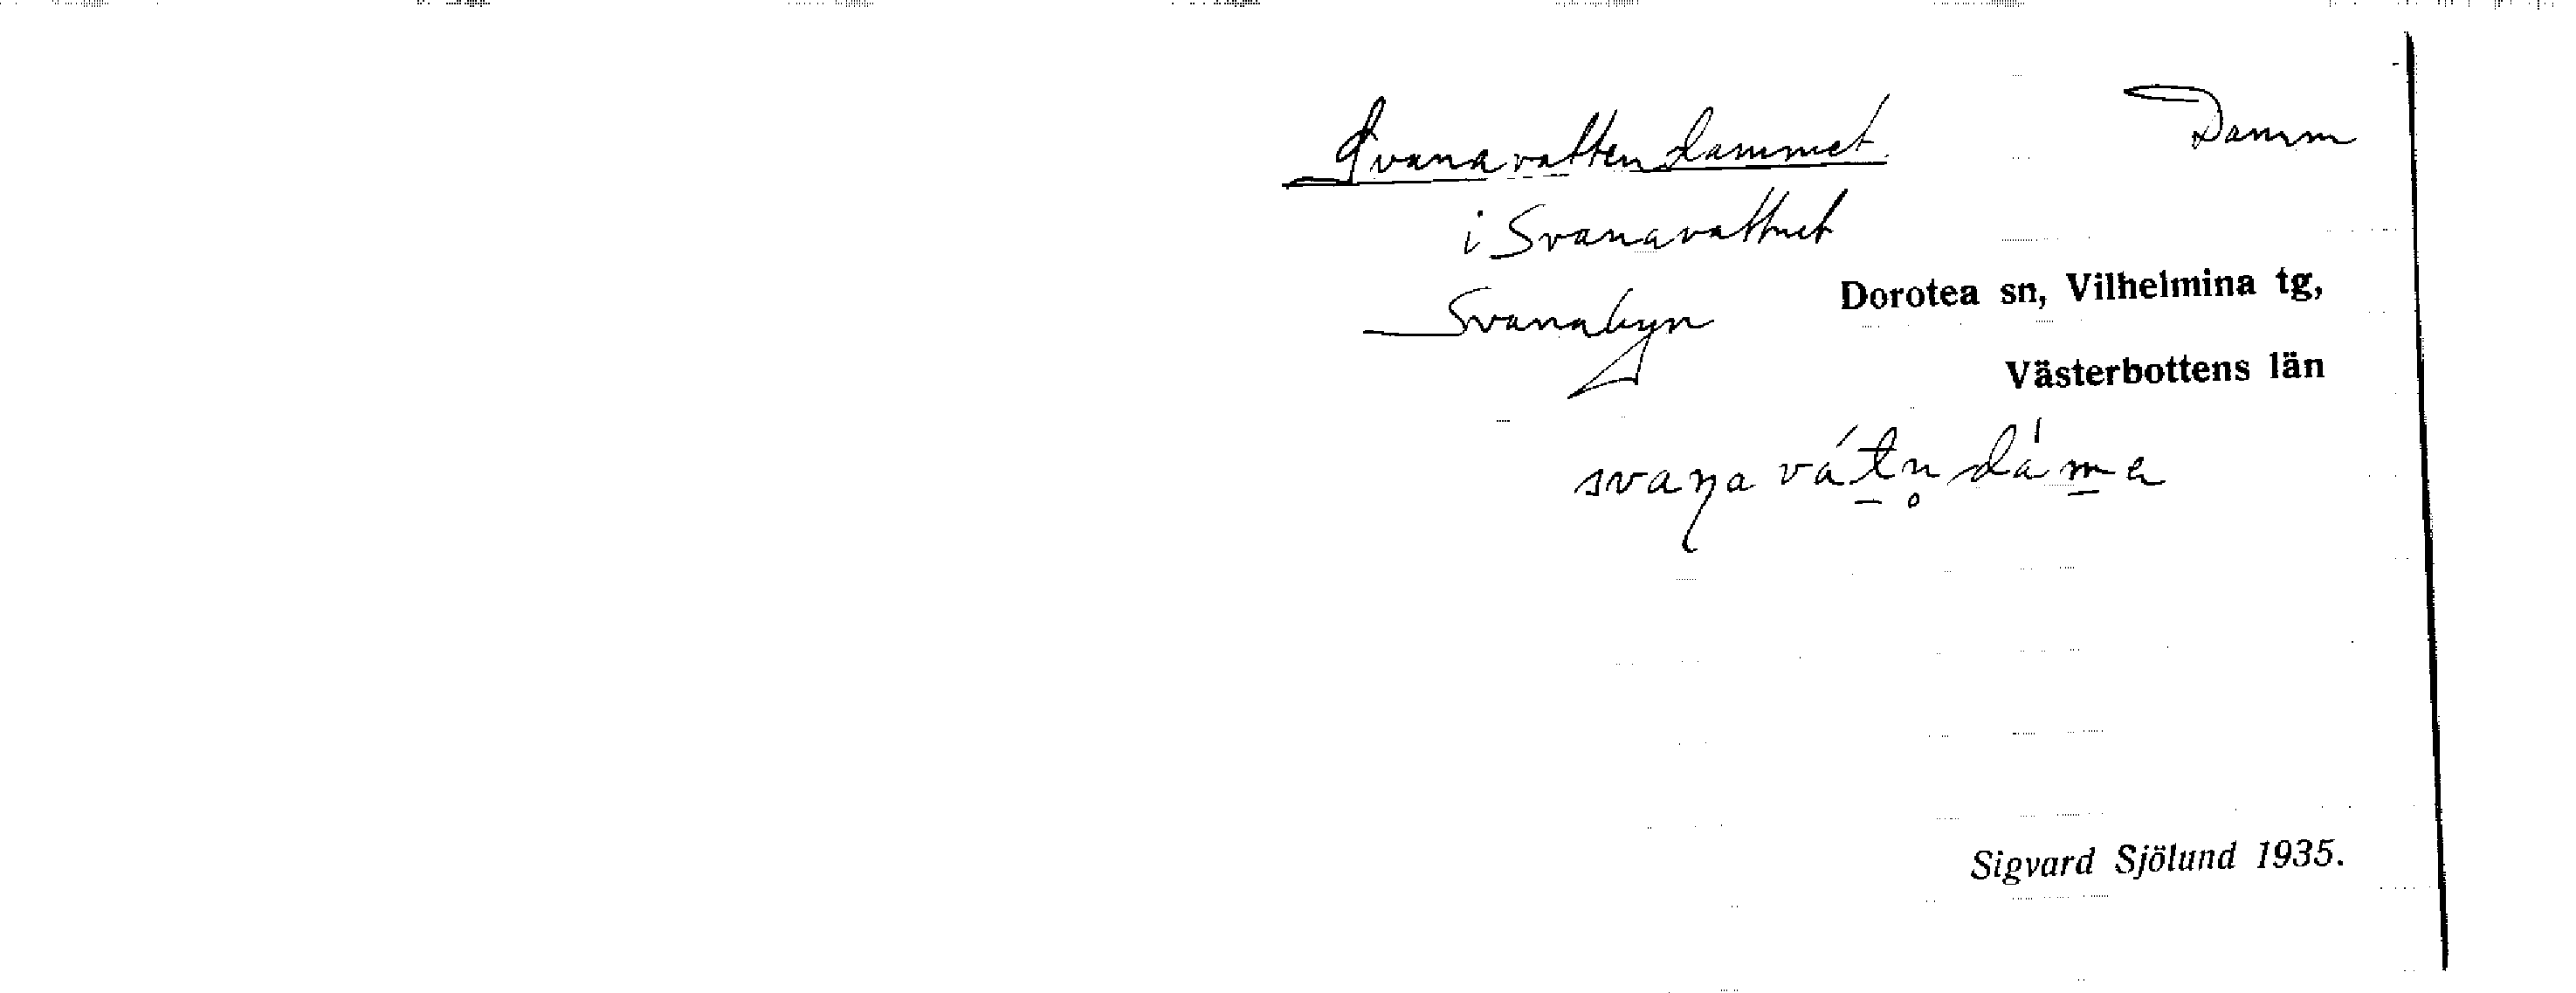 Svanavattendammet. Damm
i Svanavattnet
Svanabyn
Dorotea sn, Vilhelmina tg,
Västerbottens län
svaŋa váṯn̥ dá'm̱e
Sigvard Sjölund 1935.